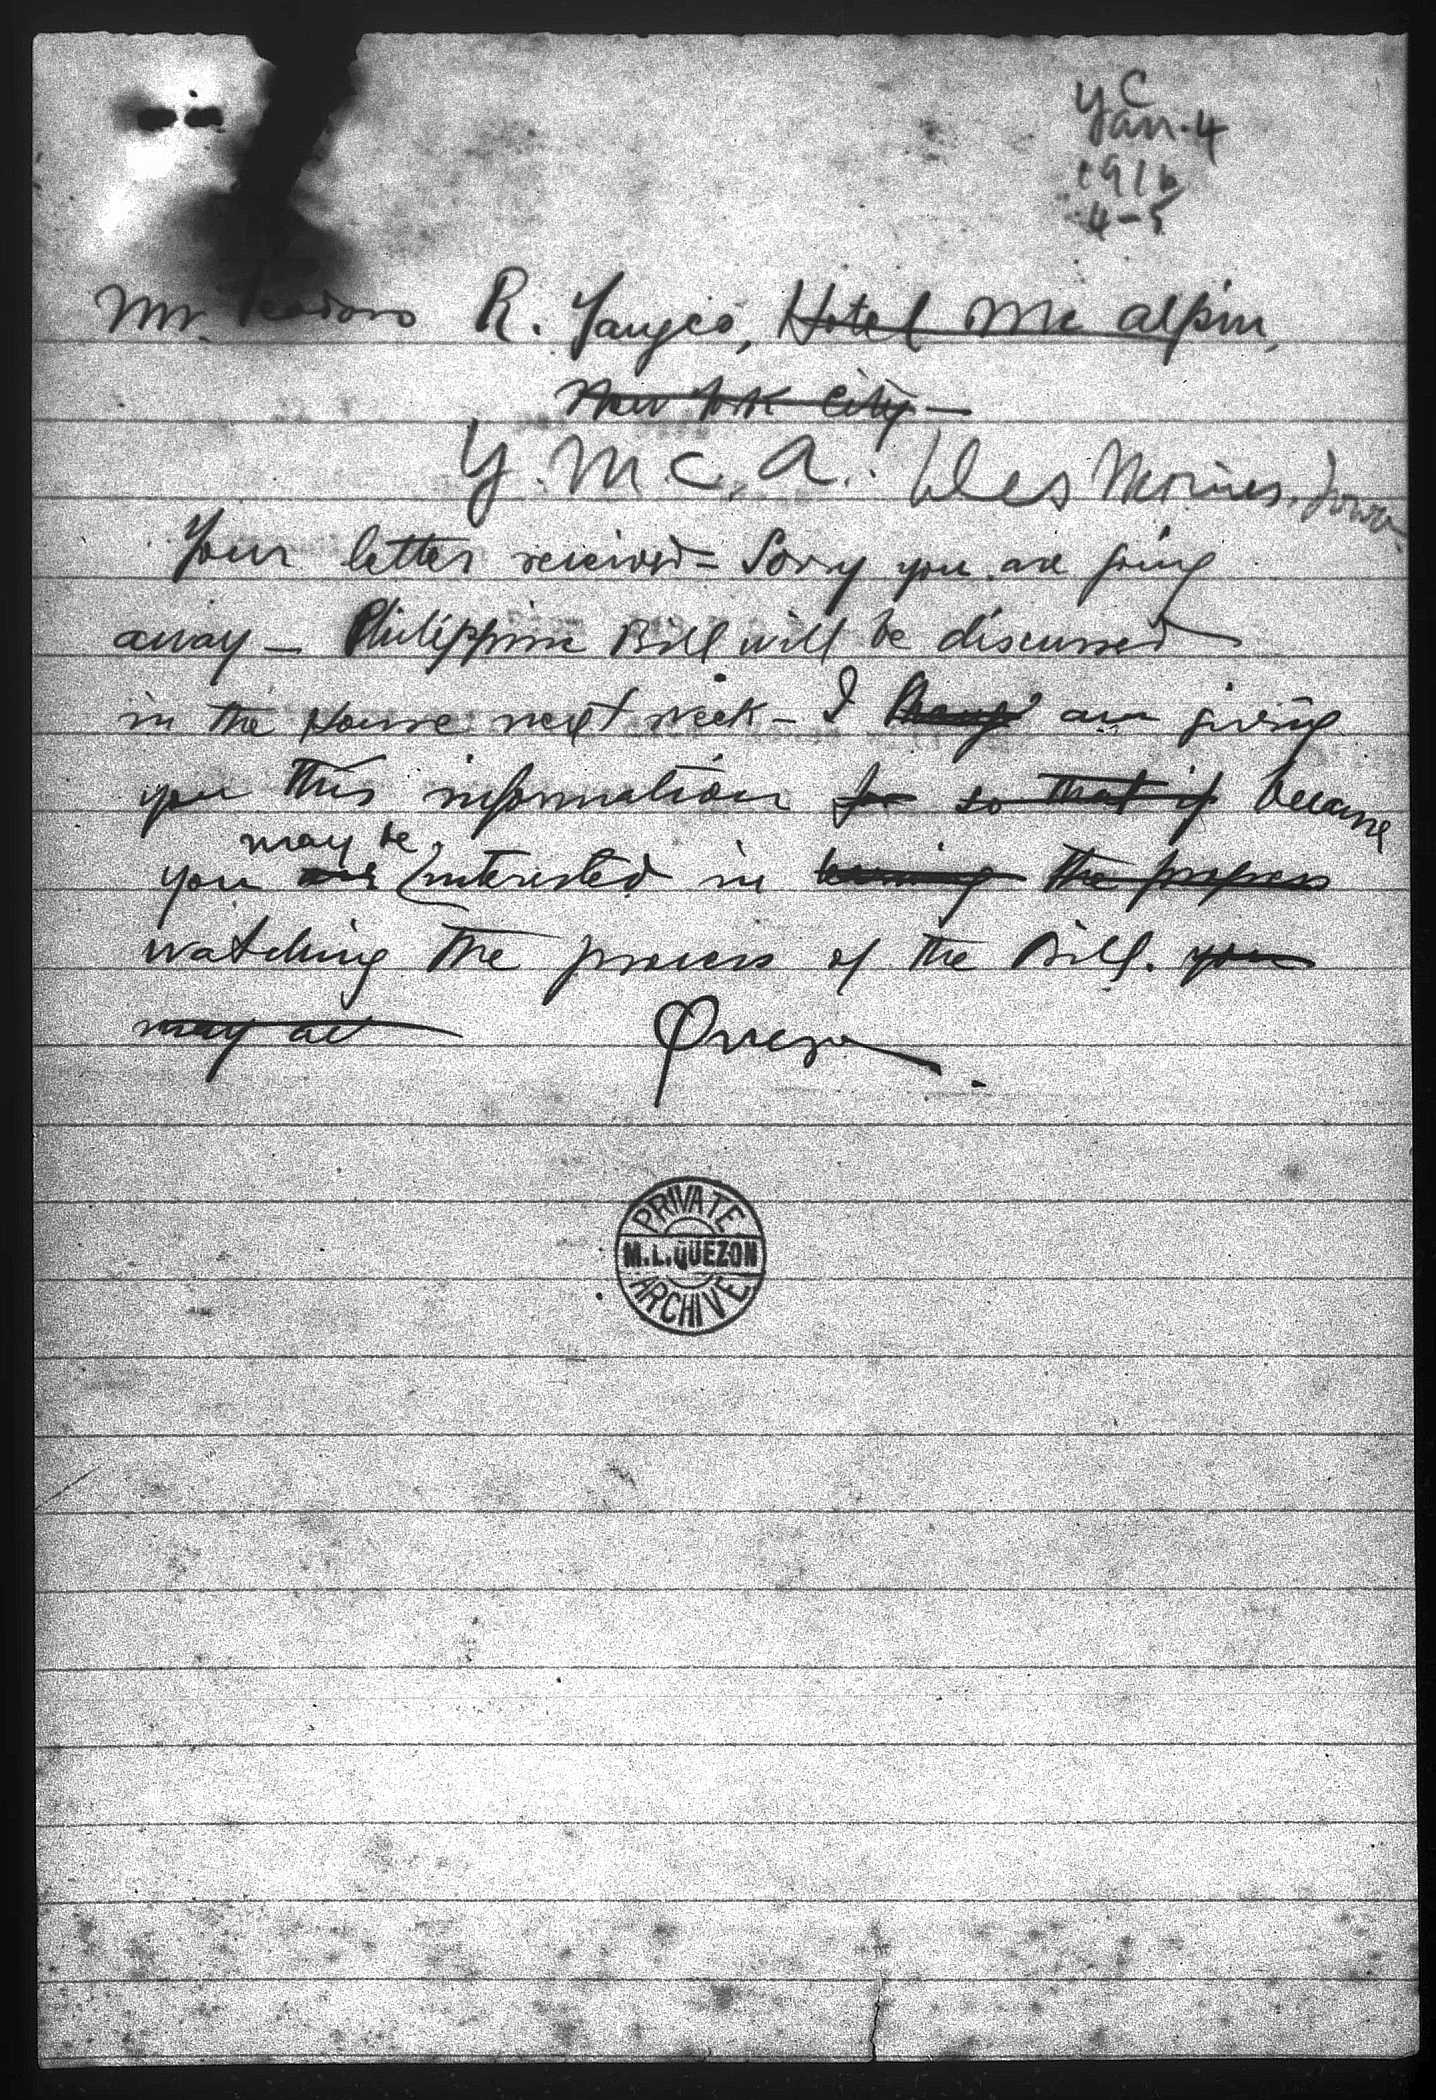 YC
Jan. 4
1916
4-5
Mr. Teodoro R. Yangco, Hotel Mc alpin,
New York City —
Y. M. C. A. Des Moines, Iowa
Your letter received = Sorry you are going
away — Philippine Bill will be discussed
in the House next week — I am giving
you this information for so that if because
may be
you are interested in the progress
watching the process of the Bill. you
may act
Quezon.
PRIVATE
M.L.QUEZON
ARCHIVE